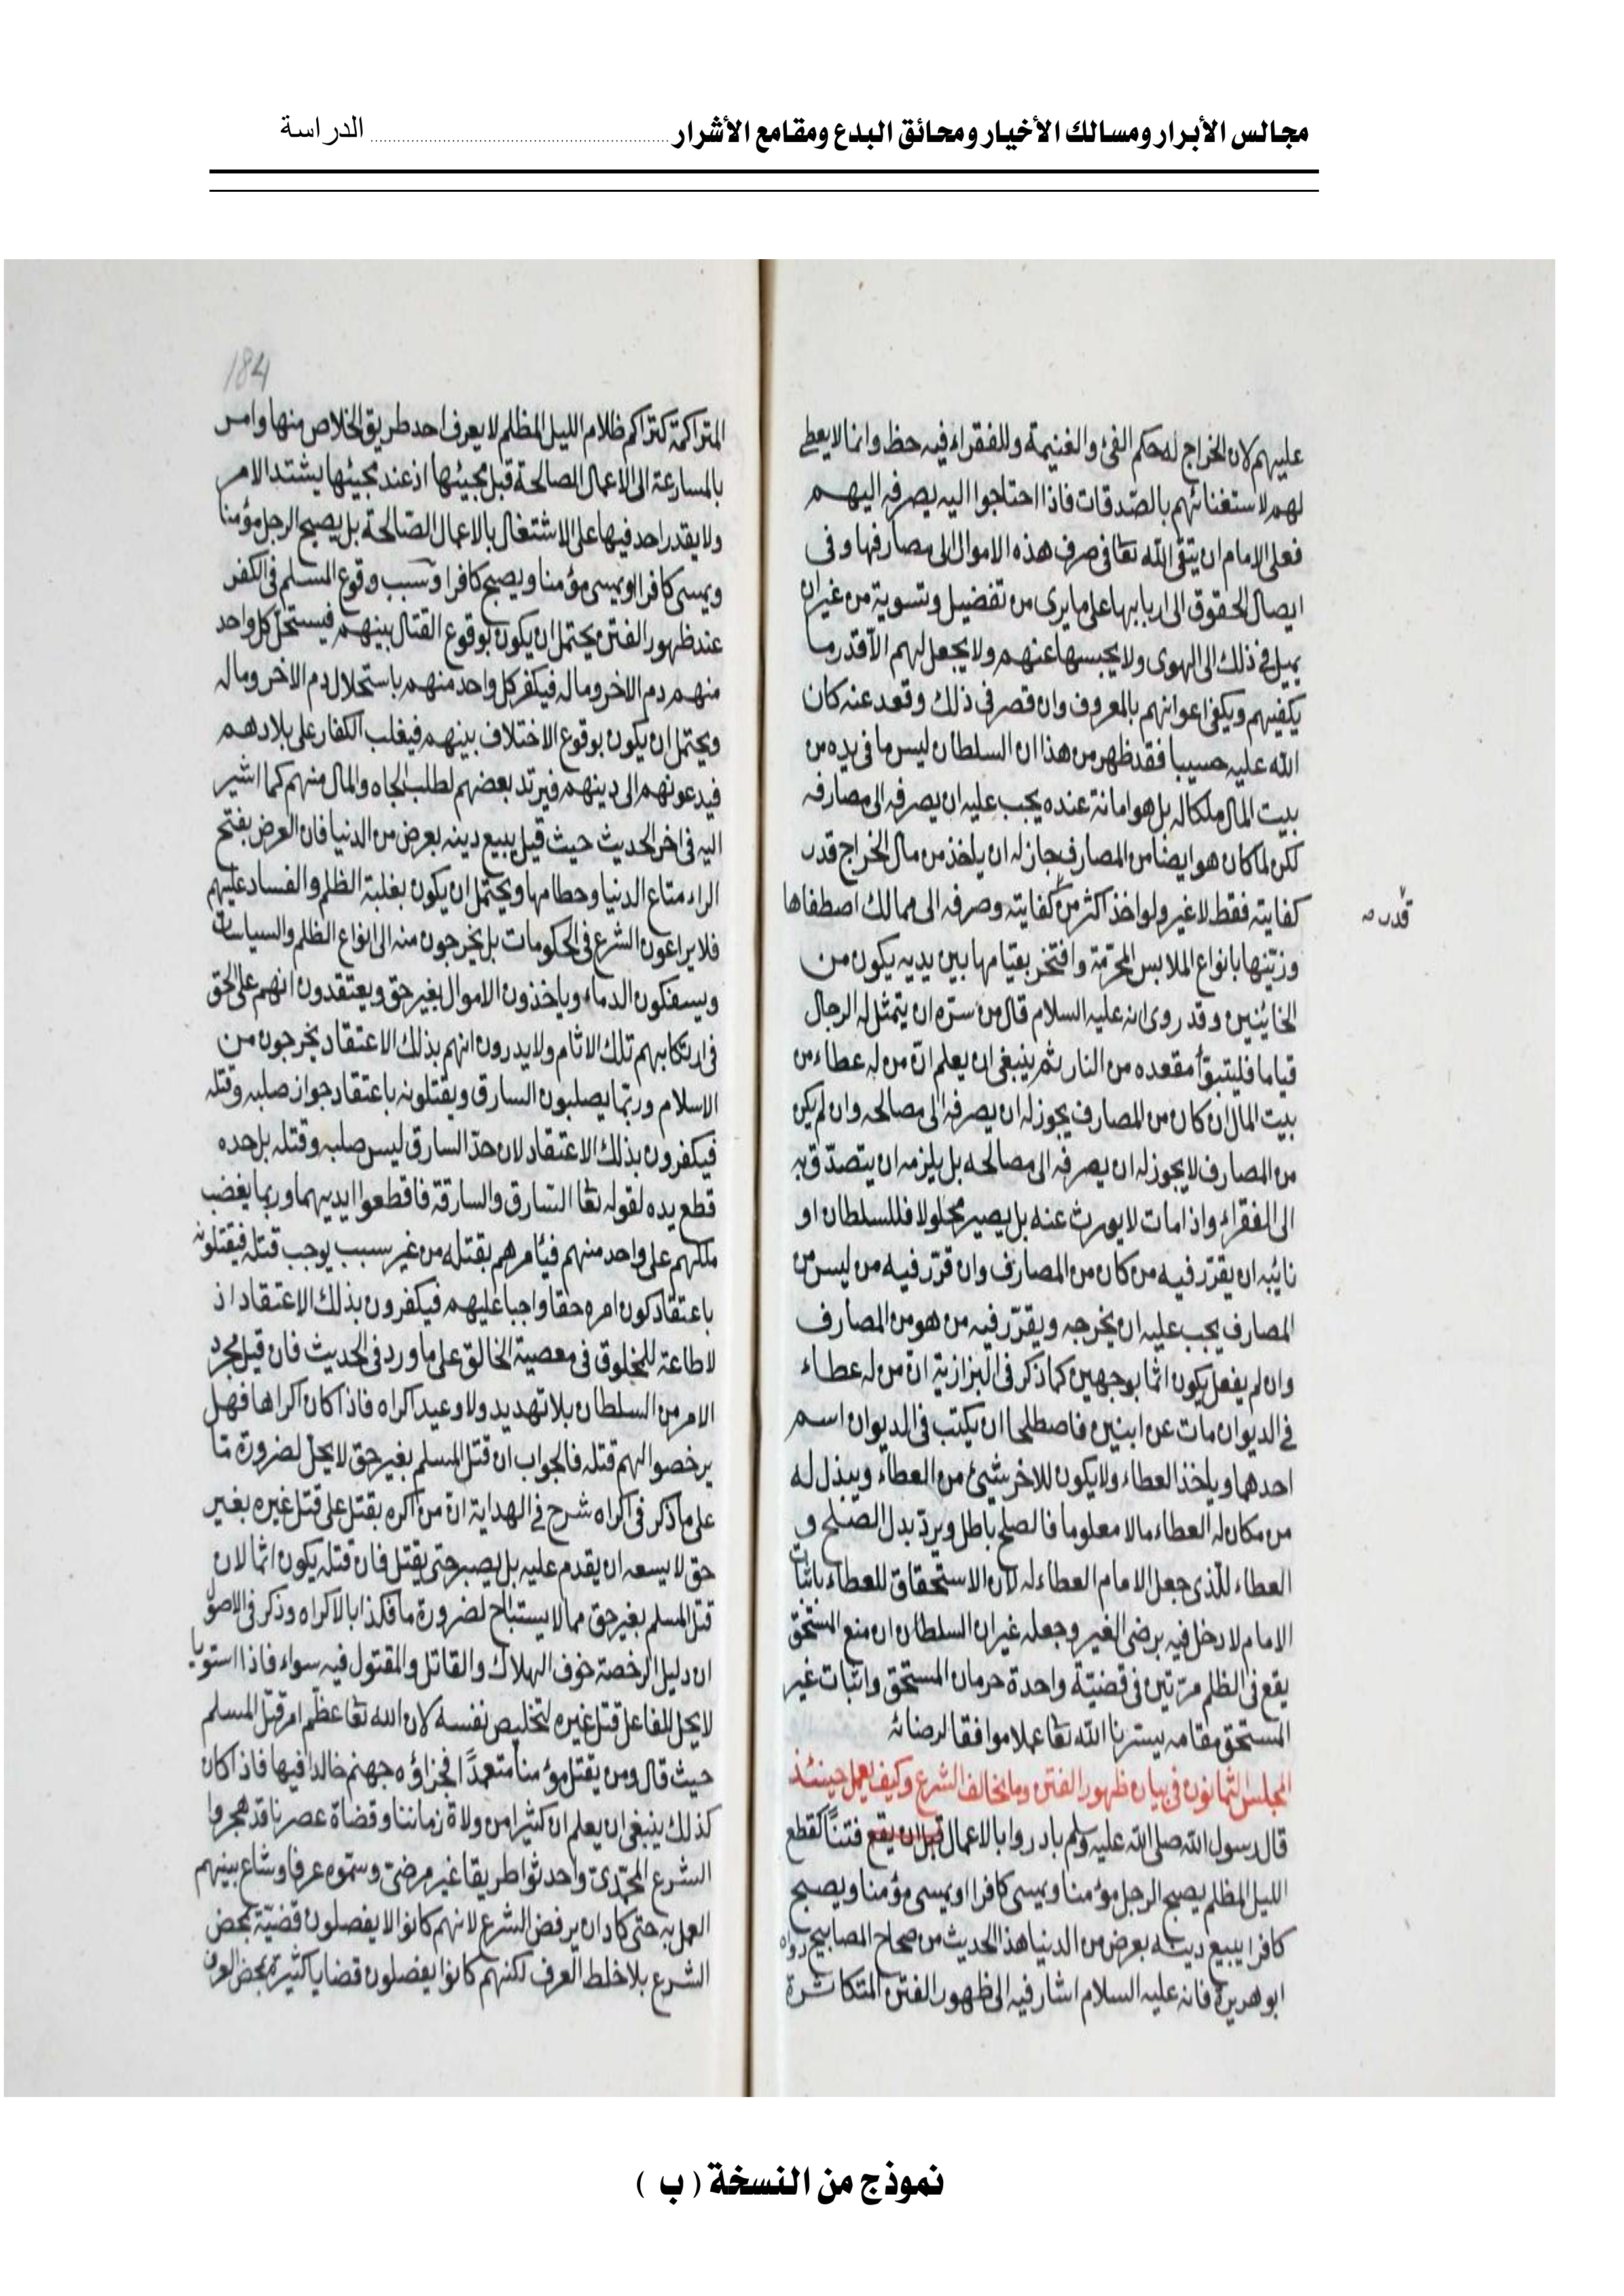 مجالس الأبرار ومسالك الأخيار ومحائق البدع ومقامع الأشرار ........ الدراسة
عليهم لان الخراج له حكم الفئ والغنيمة وللفقراء فيه حظ وانما لا يعطى
لهم لاستغنائهم بالصدقات فاذا احتاجوا اليه يصرفه اليهم
فعلى الامام ان يتقى الله تعا فى صرف هذه الاموال الى مصارفها وفى
ايصال الحقوق الى اربابها على ما يرى من تفضيل وتسوية من غير ان
يميل فى ذلك الى الهوى ولا يحبسها عنهم ولا يجعل لهم الا قدر ما
يكفيهم ويكفى اعوانهم بالمعروف وان قصر فى ذلك وقعد عنه كان
الله عليه حسيبا فقد ظهر من هذا ان السلطان ليس ما فى يده من
بيت المال ملكا له بل هو امانة عنده يجب عليه ان يصرفه الى مصارفه
لكن لما كان هو ايضا من المصارف جاز له ان ياخذ من مال الخراج قدر
كفايته فقط لا غير ولو اخذ اكثر من كفايته وصرفه الى ممالك اصطفاها
قدر صح
وزينها بانواع الملابس المحرمة وافتخر بقيامها بين يديه يكون من
الخائنين وقد روى انه عليه السلام قال من سره ان يتمثل له الرجال
قياما فليتبوأ مقعده من النار ثم ينبغى ان يعلم ان من له عطاء من
بيت المال ان كان من المصارف يجوز له ان يصرفه الى مصالحه وان لم يكن
من المصارف لا يجوز له ان يصرفه الى مصالحه بل يلزمه ان يتصدق به
الى الفقراء واذا مات لا يورث عنه بل يصير محلولا فللسلطان او
نائبه ان يقرر فيه من كان من المصارف وان قرر فيه من ليس من
المصارف يجب عليه ان يخرجه ويقرر فيه من هو من المصارف
وان لم يفعل يكون اثما بوجهين كما ذكر فى البزازية ان من له عطاء
فى الديوان مات عن ابنين فاصطلحا ان يكتب فى الديوان اسم
احدهما وياخذ العطاء ولا يكون للاخر شيئ من العطاء ويبذل له
من مكان له العطاء مالا معلوما فالصلح باطل ويرد بدل الصلح و
العطاء للذى جعل الامام العطاء له لان الاستحقاق للعطاء باثبات
الامام لا دخل فيه برضى الغير وجعله غير ان السلطان ان منع المستحق
يقع فى الظلم مرتين فى قضية واحدة حرمان المستحق واثبات غير
المستحق مقامه يسرنا الله تعا عملا موافقا لرضائه
المجلس الثمانون فى بيان ظهور الفتن وما يخالف الشرع وكيف يعمل حينئذ
قال رسول الله صلى الله عليه وسلم بادروا بالاعمال قبل ان يقع فتنا كقطع
الليل المظلم يصبح الرجل مؤمنا ويمسى كافرا او يمسى مؤمنا ويصبح
كافرا يبيع دينه بعرض من الدنيا هذا الحديث من صحاح المصابيح رواه
ابو هريرة فانه عليه السلام اشار فيه الى ظهور الفتن المتكاثرة
184
المتراكمة كتراكم ظلام الليل المظلم لا يعرف احد طريق الخلاص منها وامر
بالمسارعة الى الاعمال الصالحة قبل مجيئها اذ عند مجيئها يشتد الامر
ولا يقدر احد فيها على الاشتغال بالاعمال الصالحة بل يصبح الرجل مؤمنا
ويمسى كافرا او يمسى مؤمنا ويصبح كافرا وسبب وقوع المسلم فى الكفر
عند ظهور الفتن يحتمل ان يكون بوقوع القتال بينهم فيستحل كل واحد
منهم دم الاخر وماله فيكفر كل واحد منهم باستحلال دم الاخر وماله
ويحتمل ان يكون بوقوع الاختلاف بينهم فيغلب الكفار على بلادهم
فيدعونهم الى دينهم فيرتد بعضهم لطلب الجاه والمال منهم كما اشير
اليه فى اخر الحديث حيث قيل يبيع دينه بعرض من الدنيا فان العرض بفتح
الراء متاع الدنيا وحطامها ويحتمل ان يكون بغلبة الظلم والفساد عليهم
فلا يراعون الشرع فى الحكومات بل يخرجون منه الى انواع الظلم والسياسات
ويسفكون الدماء وياخذون الاموال بغير حق ويعتقدون انهم على الحق
فى ارتكابهم تلك الاثام ولا يدرون انهم بذلك الاعتقاد يخرجون من
الاسلام وربما يصلبون السارق ويقتلونه باعتقاد جواز صلبه وقتله
فيكفرون بذلك الاعتقاد لان حد السارق ليس صلبه وقتله بل حده
قطع يده لقوله تعا السارق والسارقة فاقطعوا ايديهما وربما يغضب
ملكهم على واحد منهم فيأمرهم بقتله من غير سبب يوجب قتله فيقتلونه
باعتقاد كون امره حقا واجبا عليهم فيكفرون بذلك الاعتقاد اذ
لا طاعة للمخلوق فى معصية الخالق على ما ورد فى الحديث فان قيل مجرد
الامر من السلطان بلا تهديد ولا وعيد اكراه فاذا كان اكراها فهل
يرخصوا لهم قتله فالجواب ان قتل المسلم بغير حق لا يحل لضرورة ما
على ما ذكر فى اكراه شرح فى الهداية ان من اكره بقتل على قتل غيره بغير
حق لا يسعه ان يقدم عليه بل يصبر حتى يقتل فان قتله يكون اثما لان
قتل المسلم بغير حق مما لا يستباح لضرورة ما فكذا بالاكراه وذكر فى الاصول
ان دليل الرخصة خوف الهلاك والقاتل والمقتول فيه سواء فاذا استويا
لا يحل للفاعل قتل غيره لتخليص نفسه لان الله تعا عظم امر قتل المسلم
حيث قال ومن يقتل مؤمنا متعمدا فجزاؤه جهنم خالدا فيها فاذا كان
كذلك ينبغى ان يعلم ان كثيرا من ولاة زماننا وقضاة عصرنا قد هجروا
الشرع المحمدى واحدثوا طريقا غير مرضى وسموه عرفا وشاع بينهم
العمل به حتى كاد ان يرفض الشرع لانهم كانوا لا يفصلون قضية بمحض
الشرع بلا خلط العرف لكنهم كانوا يفصلون قضايا كثيرة بمحض العرف
نموذج من النسخة ( ب )